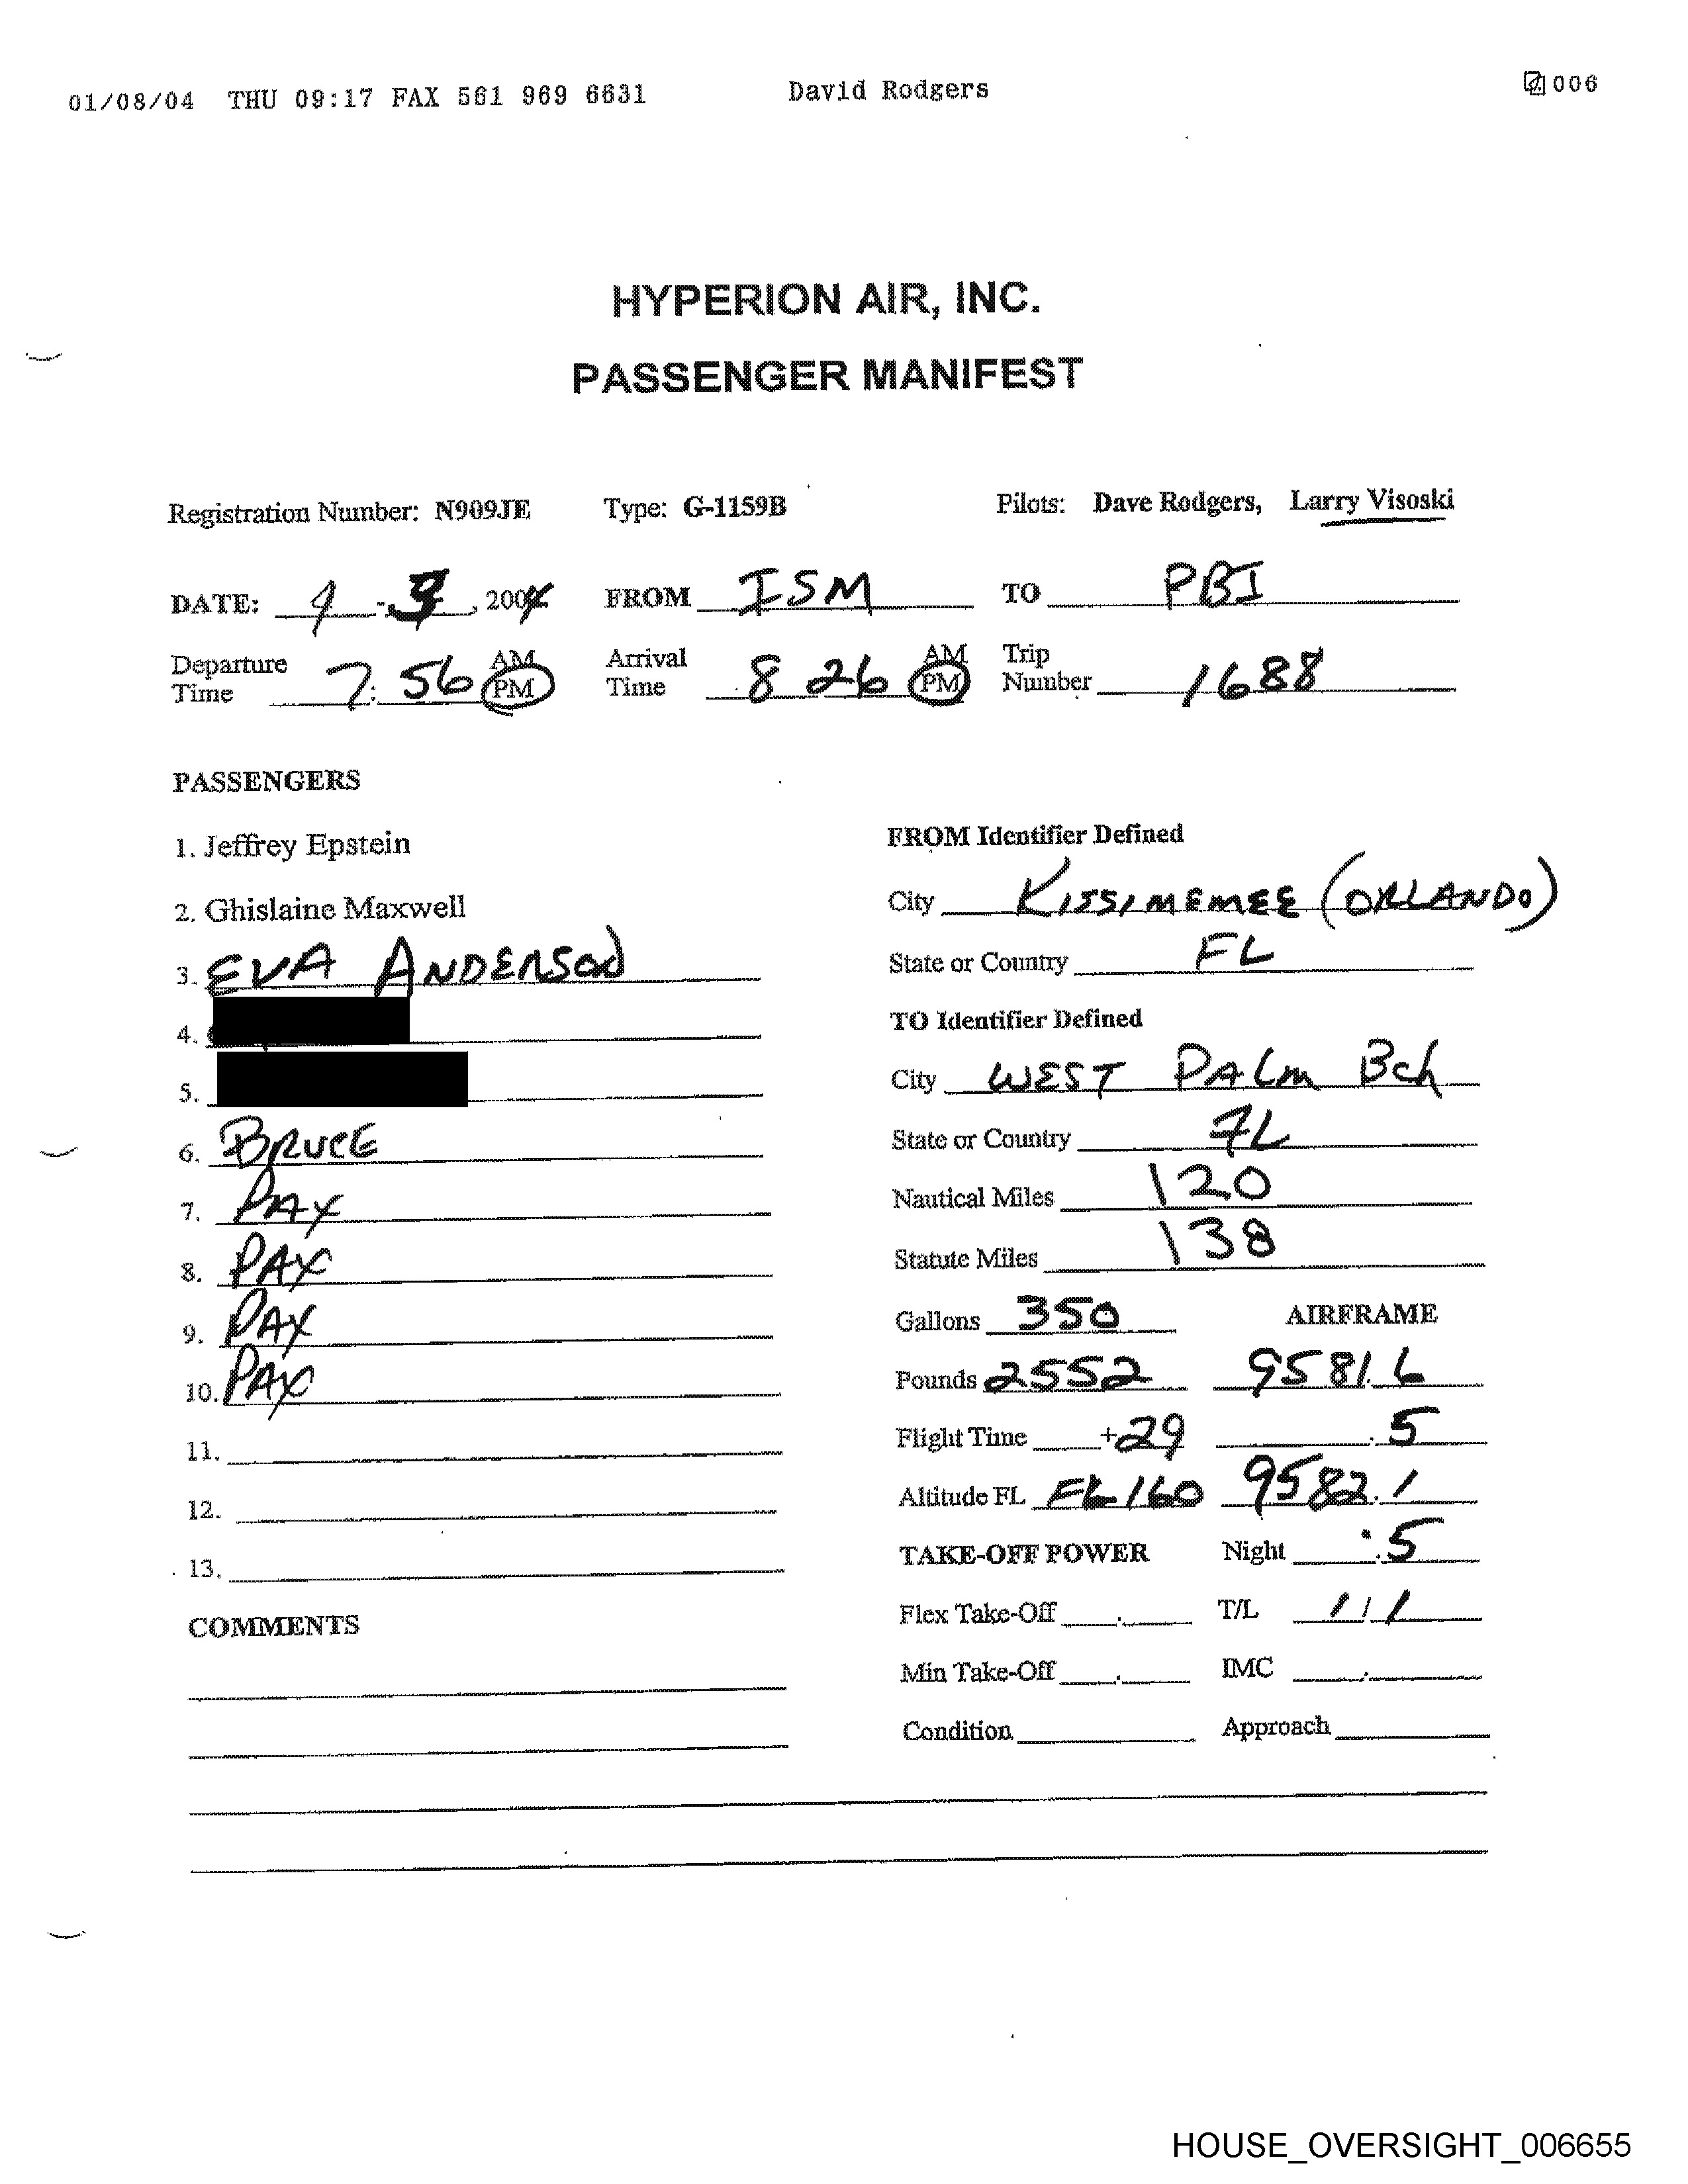 01/08/04 THU 09:17 FAX 561 969 6631 David Rodgers 006
HYPERION AIR, INC.
PASSENGER MANIFEST
Registration Number: N909JE Type: G-1159B Pilots: Dave Rodgers, Larry Visoski
DATE: 1 - 3, 2004 FROM ISM TO PBI
Departure Time 7:56 AM PM Arrival Time 8 26 AM PM Trip Number 1688
PASSENGERS
1. Jeffrey Epstein
2. Ghislaine Maxwell
3. EVA ANDERSON
4.
5.
6. BRUCE
7. PAX
8. PAX
9. PAX
10. PAX
11.
12.
13.
COMMENTS
FROM Identifier Defined
City KISSIMEMEE (ORLANDO)
State or Country FL
TO Identifier Defined
City WEST PALM Bch
State or Country FL
Nautical Miles 120
Statute Miles 138
Gallons 350 AIRFRAME
Pounds 2552 9581.6
Flight Time +29 .5
Altitude FL FL160 9582.1
TAKE-OFF POWER Night .5
Flex Take-Off . T/L 1 / 1
Min Take-Off . IMC .
Condition Approach
HOUSE_OVERSIGHT_006655